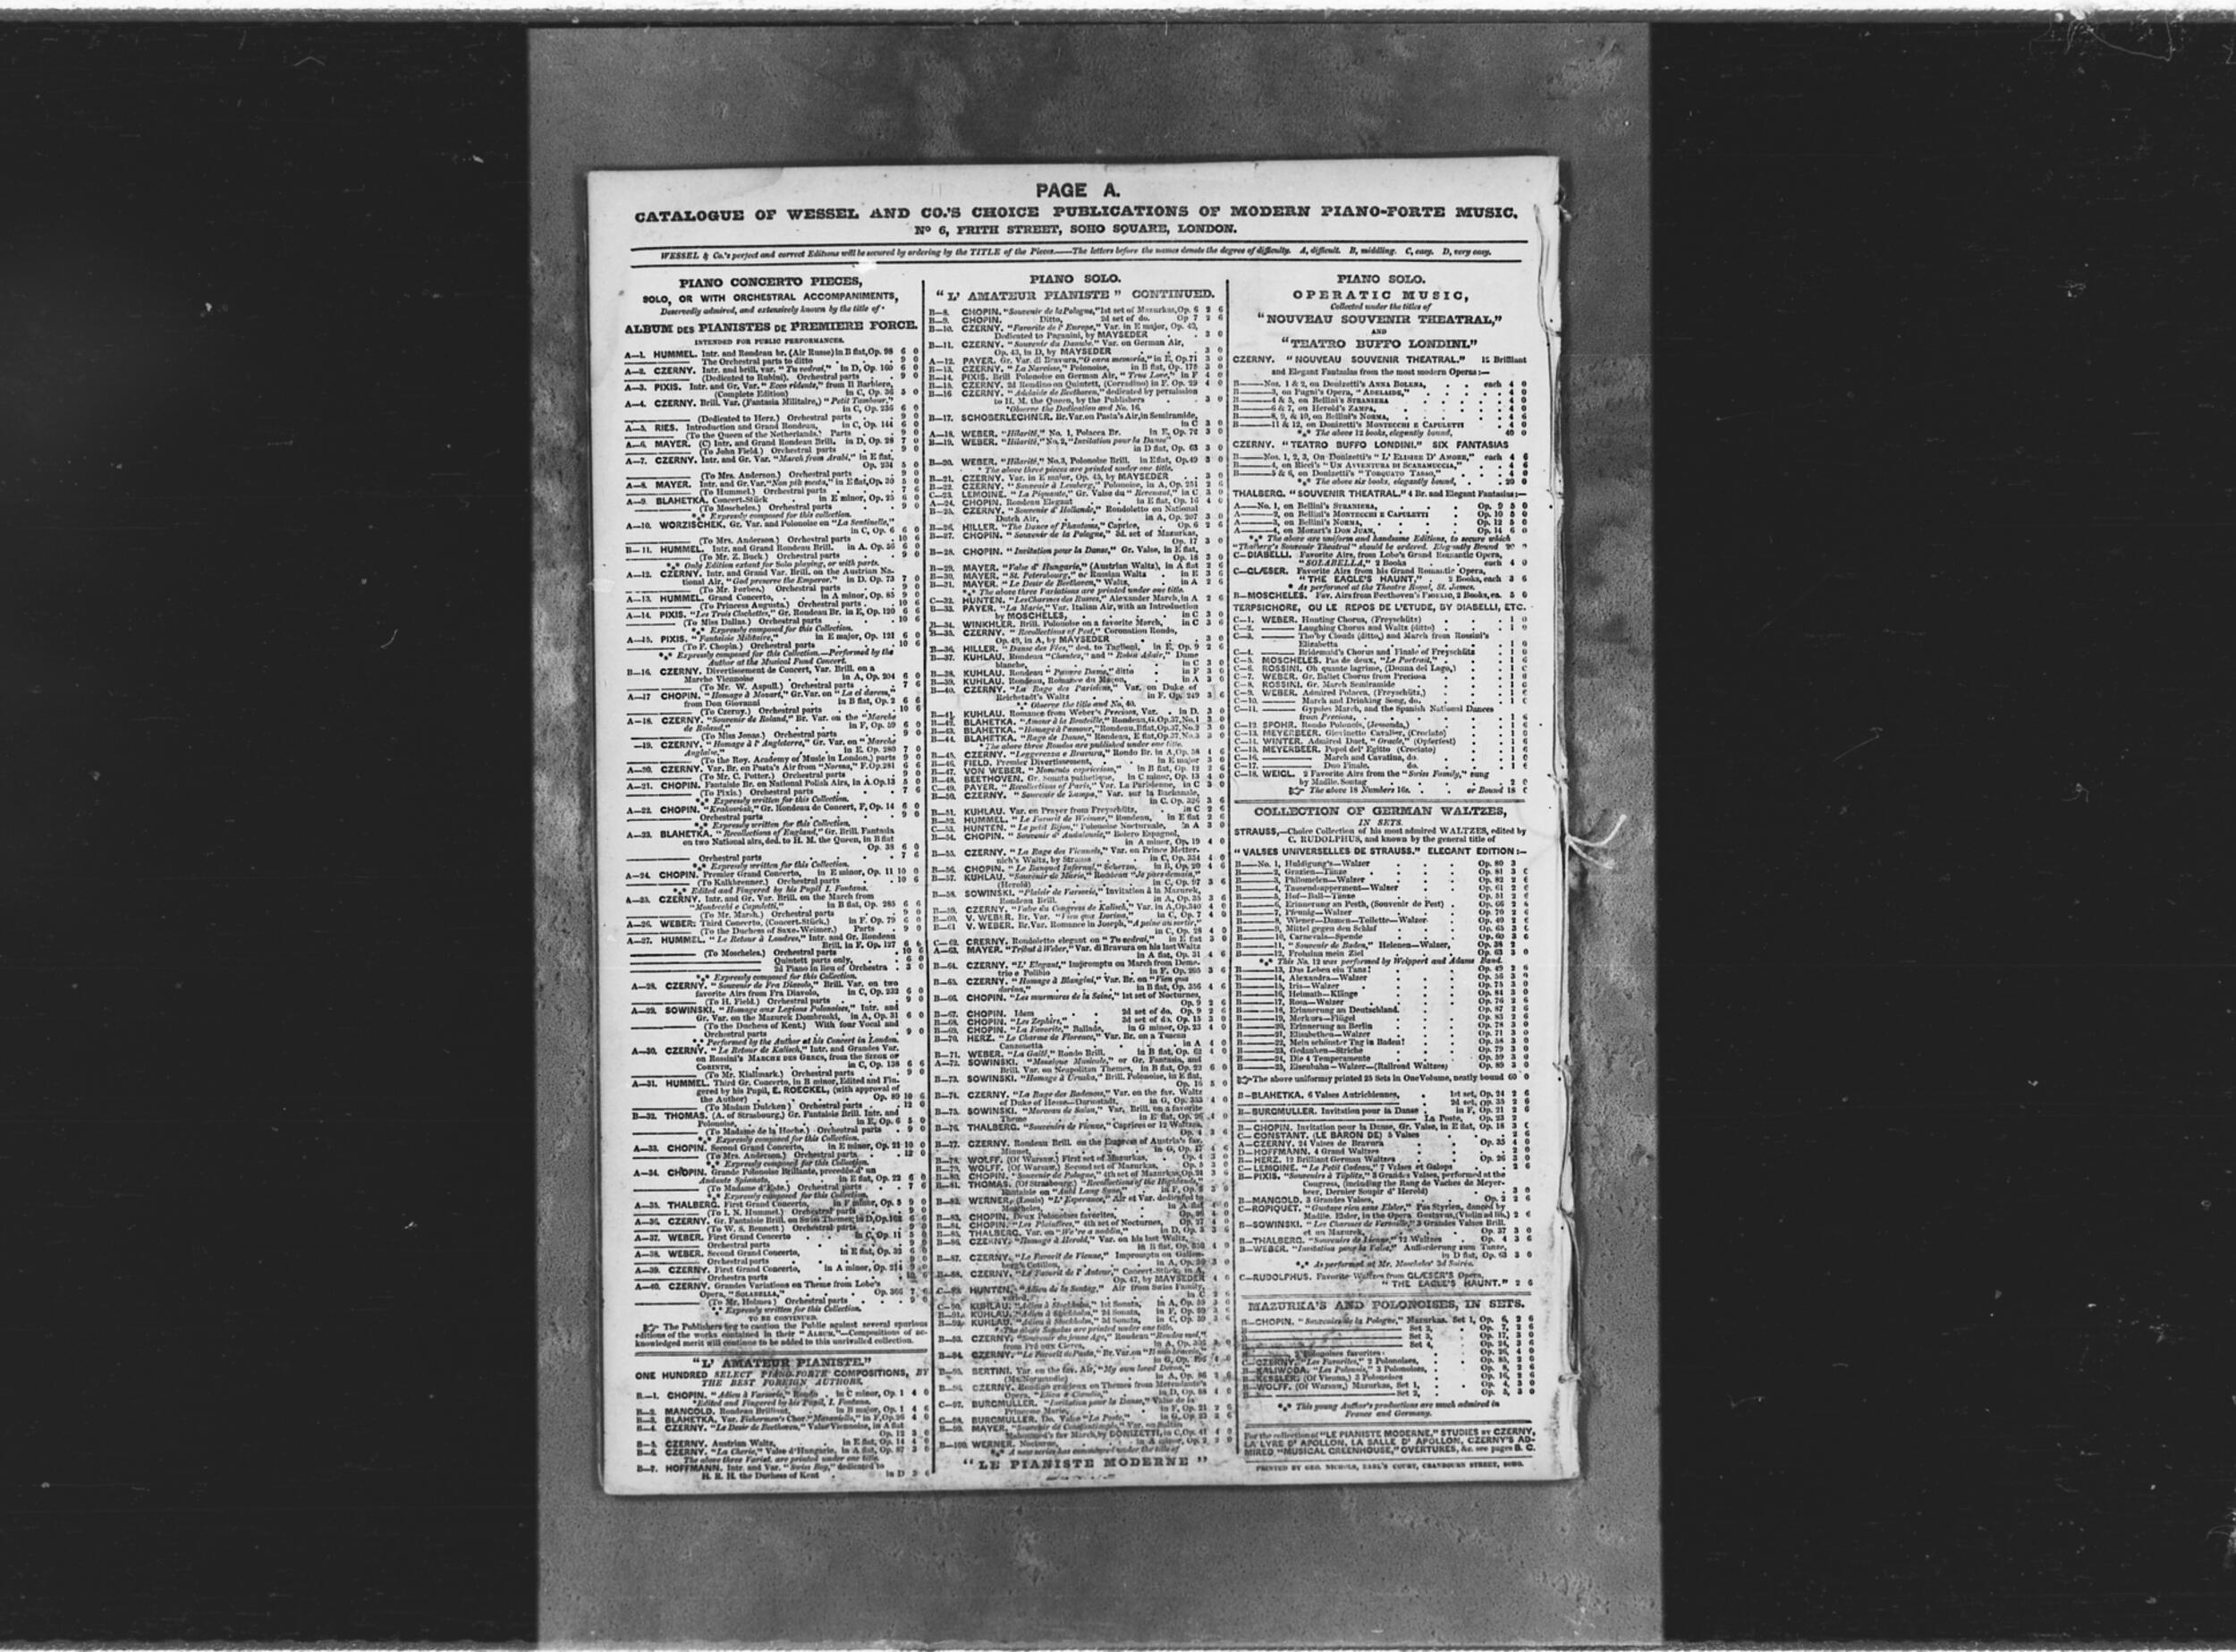 PAGE A.
CATALOGUE OF WESSEL AND CO.'S CHOICE PUBLICATIONS OF MODERN PIANO-FORTE MUSIC.
No 6, FRITH STREET, SOHO SQUARE, LONDON.
WESSEL & Co.'s perfect and correct Editions will be secured by ordering by the TITLE of the Pieces.—The letters before the names denote the degree of difficulty. A, difficult. B, middling. C, easy. D, very easy.
PIANO CONCERTO PIECES,
SOLO, OR WITH ORCHESTRAL ACCOMPANIMENTS,
Deservedly admired, and extensively known by the title of
ALBUM DES PIANISTES DE PREMIERE FORCE.
INTENDED FOR PUBLIC PERFORMANCES.
A—1. HUMMEL. Intr. and Rondeau br. (Air Russe) in B flat, Op. 98 6 0
The Orchestral parts to ditto 9 0
A—2. CZERNY. Intr. and brill. var. "Tu vedrai," in D, Op. 160 6 0
(Dedicated to Rubini). Orchestral parts 9 0
A—3. PIXIS. Intr. and Gr. Var. "Ecco ridente," from Il Barbiere,
(Complete Edition) in C, Op. 36 5 0
A—4. CZERNY. Brill. Var. (Fantasia Militaire,) "Petit Tambour,"
in C, Op. 236 6 0
(Dedicated to Herz.) Orchestral parts 9 0
A—5. RIES. Introduction and Grand Rondeau, in C, Op. 144 6 0
(To the Queen of the Netherlands.) Parts 9 0
A—6. MAYER. (C) Intr. and Grand Rondeau Brill. in D, Op. 28 7 0
(To John Field.) Orchestral parts 9 0
A—7. CZERNY. Intr. and Gr. Var. "March from Arabi," in E flat,
Op. 234 5 0
(To Mrs. Anderson.) Orchestral parts 9 0
A—8. MAYER. Intr. and Gr. Var. "Non più mesta," in E flat, Op. 30 5 0
(To Hummel.) Orchestral parts 7 6
A—9. BLAHETKA. Concert-Stück in E minor, Op. 25 6 0
(To Moscheles.) Orchestral parts 9 0
*** Expressly composed for this collection.
A—10. WORZISCHEK. Gr. Var. and Polonoise on "La Sentinelle,"
in C, Op. 6 6 0
(To Mrs. Anderson.) Orchestral parts 10 6
B—11. HUMMEL. Intr. and Grand Rondeau Brill. in A. Op. 56 6 0
(To Mr. Z. Buck.) Orchestral parts 9 0
*** Only Edition extant for Solo playing, or with parts.
A—12. CZERNY. Intr. and Grand Var. Brill. on the Austrian Na-
tional Air, "God preserve the Emperor." in D. Op. 73 7 0
(To Mr. Forbes.) Orchestral parts 9 0
A—13. HUMMEL. Grand Concerto, in A minor, Op. 85 9 0
(To Princess Augusta.) Orchestral parts 10 6
A—14. PIXIS. "Les Trois Clochettes," Gr. Rondeau Br. in E, Op. 120 6 6
(To Miss Dallas.) Orchestral parts 10 6
*** Expressly composed for this Collection.
A—15. PIXIS. "Fantaisie Militaire," in E major, Op. 121 6 0
(To F. Chopin.) Orchestral parts 10 6
*** Expressly composed for this Collection.—Performed by the
Author at the Musical Fund Concert.
B—16. CZERNY. Divertisement de Concert, Var. Brill. on a
Marche Viennoise in A, Op. 204 6 0
(To Mr. W. Aspull.) Orchestral parts 7 6
A—17 CHOPIN. "Homage à Mozart," Gr. Var. on "La ci darem,"
from Don Giovanni in B flat, Op. 2 6 6
(To Czerny.) Orchestral parts 10 6
A—18. CZERNY. "Souvenir de Roland," Br. Var. on the "Marche
de Roland," in F, Op. 59 6 0
(To Miss Jonas.) Orchestral parts 9 0
—19. CZERNY. "Homage à l'Angleterre," Gr. Var. on "Marche
Anglaise," in E, Op. 280 7 0
(To the Roy. Academy of Music in London.) parts 9 0
A—20. CZERNY. Var. Br. on Pasta's Air from "Norma," F. Op. 281 6 6
(To Mr. C. Potter.) Orchestral parts 9 0
A—21. CHOPIN. Fantaisie Br. on National Polish Airs, in A. Op. 13 5 0
(To Pixis.) Orchestral parts 7 6
*** Expressly written for this Collection.
A—22. CHOPIN. "Krakowiak," Gr. Rondeau de Concert, F, Op. 14 6 0
Orchestral parts 9 0
*** Expressly written for this Collection.
A—23. BLAHETKA. "Recollections of England," Gr. Brill. Fantasia
on two National airs, ded. to H. M. the Queen, in B flat
Op. 38 6 0
Orchestral parts 7 6
*** Expressly written for this Collection.
A—24. CHOPIN. Premier Grand Concerto, in E minor, Op. 11 10 0
(To Kalkbrenner.) Orchestral parts 10 6
*** Edited and Fingered by his Pupil I. Fontana.
A—25. CZERNY. Intr. and Gr. Var. Brill. on the March from
"Montecchi e Capuletti," in B flat, Op. 285 6 6
(To Mr. Marsh.) Orchestral parts 9 0
A—26. WEBER: Third Concerto, (Concert-Stück.) in F. Op. 79 6 0
(To the Duchess of Saxe-Weimer.) Parts 9 0
A—27. HUMMEL. "Le Retour à Londres," Intr. and Gr. Rondeau
Brill. in F. Op. 127 6 6
(To Moscheles.) Orchestral parts 10 6
Quintett parts only, 6 0
2d Piano in lieu of Orchestra 3 0
*** Expressly composed for this Collection.
A—28. CZERNY. "Souvenir de Fra Diavolo," Brill. Var. on two
favorite Airs from Fra Diavolo, in C, Op. 232 6 0
(To H. Field.) Orchestral parts 9 0
A—29. SOWINSKI. "Homage aux Legions Polonoises," Intr. and
Gr. Var. on the Mazurek Dombroski, in A, Op. 31 6 0
(To the Duchess of Kent.) With four Vocal and
Orchestral parts 9 0
*** Performed by the Author at his Concert in London.
A—30. CZERNY. "Le Retour de Kalisch," Intr. and Grandes Var.
on Rossini's MARCHE DES GRECS, from the SIEGE OF
CORINTH, in C, Op. 138 6 6
(To Mr. Kiallmark.) Orchestral parts 9 0
A—31. HUMMEL. Third Gr. Concerto, in B minor, Edited and Fin-
gered by his Pupil, E. ROECKEL, (with approval of
the Author) Op. 89 10 6
(To Madam Dulcken) Orchestral parts 12 0
B—32. THOMAS. (A. of Strasbourg.) Gr. Fantaisie Brill. Intr. and
Polonoise, in E, Op. 6 5 0
(To Madame de la Hache.) Orchestral parts 9 0
*** Expressly composed for this Collection.
A—33. CHOPIN. Second Grand Concerto, in E minor, Op. 21 10 0
(To Mrs. Anderson.) Orchestral parts 12 0
*** Expressly composed for this Collection.
A—34. CHOPIN. Grande Polonoise Brillante, precedée d'un
Andante Spianato, in E flat, Op. 22 6 0
(To Madame d'Este.) Orchestral parts 7 6
*** Expressly composed for this Collection.
A—35. THALBERG. First Grand Concerto, in F minor, Op. 5 9 0
(To I. N. Hummel.) Orchestral parts 9 0
A—36. CZERNY. Gr. Fantaisie Brill. on Swiss Themes, in D, Op. 162 6 6
(To W. S. Bennett.) Orchestral parts 9 0
A—37. WEBER. First Grand Concerto in C, Op. 11
Orchestral parts 9 0
A—38. WEBER. Second Grand Concerto, in E flat, Op. 33 6 0
Orchestral parts
A—39. CZERNY. First Grand Concerto, in A minor, Op. 214 9 0
Orchestra parts
A—40. CZERNY. Grandes Variations on Theme from Lobe's
Opera, "SOLABELLA," Op. 366 7 6
(To Mr. Holmes) Orchestral parts 9
*** Expressly written for this Collection.
TO BE CONTINUED.
The Publishers beg to caution the Public against several spurious
editions of the works contained in their "ALBUM."—Compositions of ac-
knowledged merit will continue to be added to this unrivalled collection.
"L' AMATEUR PIANISTE."
ONE HUNDRED SELECT PIANO-FORTE COMPOSITIONS, BY
THE BEST FOREIGN AUTHORS.
B—1. CHOPIN. "Adieu à Varsovie," Rondo in C minor, Op. 1 4 0
*Edited and Fingered by his Pupil, I. Fontana.
B—2. MANGOLD. Rondeau Brilliant, in B major, Op. 1 4 6
B—3. BLAHETKA. Var. Fishermen's Chor. "Masaniello," in F, Op. 26 4 0
B—4. CZERNY. "Le Desir de Beethoven," Valse Viennoise, in A flat
Op. 12 3 0
B—5. CZERNY. Austrian Waltz, in E flat, Op. 14 4 0
B—6. CZERNY. "La Cherie," Valse d'Hungarie, in A flat, Op. 87 3 0
The above three Variat. are printed under one title.
B—7. HOFFMANN. Intr. and Var. "Swiss Boy," dedicated to
H. R. H. the Duchess of Kent in D 3 6
PIANO SOLO.
"L' AMATEUR PIANISTE" CONTINUED.
B—8. CHOPIN. "Souvenir de la Pologne," 1st set of Mazurkas, Op. 6 2 6
B—9. CHOPIN. Ditto, 2d set of do. Op 7 2 6
B—10. CZERNY. "Favorite de l'Europe," Var. in E major, Op. 43,
Dedicated to Paganini, by MAYSEDER 3 0
B—11. CZERNY. "Souvenir du Danube," Var. on German Air,
Op. 43, in D, by MAYSEDER 3 0
A—12. PAYER. Gr. Var. di Bravura, "O cara memoria," in E, Op. 71 3 0
B—13. CZERNY. "La Narcisse," Polonoise, in B flat, Op. 178 3 0
B—14. PIXIS. Brill Polonoise on German Air, "True Love," in F 4 0
B—15. CZERNY. 2d Rondino on Quintett, (Corradino) in F. Op. 29 4 0
B—16 CZERNY. "Adelaide de Beethoven," dedicated by permission
to H. M. the Queen, by the Publishers 3 0
*Observe the Dedication and No. 16.
B—17. SCHOBERLECHNER. Br. Var. on Pasta's Air, in Semiramide,
in C 3 0
A—18. WEBER. "Hilarité," No. 1, Polacca Br. in E, Op. 72 3 0
B—19. WEBER. "Hilarité," No. 2, "Invitation pour la Danse"
in D flat, Op. 63 3 0
B—20. WEBER. "Hilarité," No. 3, Polonoise Brill. in E flat, Op. 49 3 0
* The above three pieces are printed under one title.
B—21. CZERNY. Var. in E major, Op. 45, by MAYSEDER 3 0
B—22. CZERNY. "Souvenir à Lemberg," Polonoise, in A, Op. 251 2 6
C—23. LEMOINE. "La Piquante," Gr. Valse du "Revenant," in C 3 0
A—24. CHOPIN. Rondeau Elegant in E flat, Op. 16 4 0
B—25. CZERNY. "Souvenir d'Hollande," Rondoletto on National
Dutch Air, in A, Op. 207 3 0
B—26. HILLER. "The Dance of Phantoms," Caprice, Op. 6 2 6
B—27. CHOPIN. "Souvenir de la Pologne," 3d. set of Mazurkas,
Op. 17 3 0
B—28. CHOPIN. "Invitation pour la Danse," Gr. Valse, in E flat,
Op. 18 3 0
B—29. MAYER. "Valse d'Hungarie," (Austrian Waltz), in A flat 2 6
B—30. MAYER. "St. Petersbourg," or Russian Waltz in E 3 6
B—31. MAYER. "Le Desir de Beethoven," Waltz, in A 2 6
*** The above three Variations are printed under one title.
C—32. HUNTEN. "Les Charmes des Russes," Alexander March, in A 2 6
B—33. PAYER. "La Marie," Var. Italian Air, with an Introduction
by MOSCHELES, in C 3 0
B—34. WINKHLER. Brill. Polonoise on a favorite March, in C 3 6
B—35. CZERNY. "Recollections of Pest," Coronation Rondo,
Op. 49, in A, by MAYSEDER 3 0
B—36. HILLER. "Danse des Fées," ded. to Taglioni, in E, Op. 9 2 6
B—37. KUHLAU. Rondeau "Chantez," and "Robin Adair," Dame
blanche, in C 3 0
B—38. KUHLAU. Rondeau "Pauvre Dame," ditto in F 3 0
B—39. KUHLAU. Rondeau, Romance du Maçon, in A 3 0
B—40. CZERNY. "La Rage des Parisiens," Var. on Duke of
Reichstadt's Waltz in F. Op. 249 3 6
*** Observe the title and No. 40.
B—41. KUHLAU. Romance from Weber's Preciosa, Var. in D. 3 0
B—42. BLAHETKA. "Amour à la Bouteille," Rondeau, G. Op. 37, No. 1 3 0
B—43. BLAHETKA. "Homage à l'amour," Rondeau, B flat, Op. 37, No. 2 3 0
B—44. BLAHETKA. "Rage de Danse," Rondeau, E flat, Op. 37, No. 3 3 0
*The above three Rondos are published under one title.
B—45. CZERNY. "Leggerezza e Bravura," Rondo Br. in A, Op. 58 4 6
B—46. FIELD. Premier Divertissement, in E major 3 0
B—47. VON WEBER. "Momento capriccioso," in B flat, Op. 12 2 6
B—48. BEETHOVEN. Gr. Sonata pathetique, in C minor, Op. 13 4 0
C—49. PAYER. "Recollections of Paris," Var. La Parisienne, in C 3 0
B—50. CZERNY. "Souvenir de Zampa," Var. sur la Bachanale,
in C. Op. 326 3 6
B—51. KUHLAU. Var. on Prayer from Freyschütz, in C 2 6
B—52. HUMMEL. "Le Favorit de Weimar," Rondeau, in E flat 2 6
C—53. HUNTEN. "Le petit Bijou," Polonoise Nocturnale, in A 3 0
B—54. CHOPIN. "Souvenir d'Andalousie," Bolero Espagnol,
in A minor, Op. 19 4 0
B—55. CZERNY. "La Rage des Viennois," Var. on Prince Metter-
nich's Waltz, by Strauss in C, Op. 334 4 0
B—56. CHOPIN. "Le Banquet Infernal," Scherzo, in B, Op. 20 4 6
B—57. KUHLAU. "Souvenir de Marie," Rondeau "Je pars demain,"
(Herold) in C, Op. 97 3 6
B—58. SOWINSKI. "Plaisir de Varsovie," Invitation à la Mazurek,
Rondeau Brill. in A, Op. 35 3 6
B—59. CZERNY. "Valse du Congress de Kalisch," Var. in A, Op. 340 4 0
B—60. V. WEBER. Br. Var. "Vien qua Dorina," in C, Op. 7 4 0
B—61 V. WEBER. Br. Var. Romance in Joseph, "A peine au sortir,"
in C, Op. 28 4 0
C—62. CRERNY. Rondoletto elegant on "Tu vedrai," in E flat 3 0
A—63. MAYER. "Tribut à Weber," Var. di Bravura on his last Waltz
in A flat, Op. 31 4 6
B—64. CZERNY. "L'Elegant," Impromptu on March from Deme-
trio e Polibio in F. Op. 205 3 6
B—65. CZERNY. "Homage à Blangini," Var. Br. on "Vien qua
dorina," in B flat, Op. 356 4 6
B—66. CHOPIN. "Les murmures de la Seine," 1st set of Nocturnes,
Op. 9 2 6
B—67. CHOPIN. Idem 2d set of do. Op. 9 2 6
B—68. CHOPIN. "Les Zephirs," 3d set of do. Op. 15 3 0
B—69. CHOPIN. "La Favorite," Ballade, in G minor, Op. 23 4 0
B—70. HERZ. "Le Charme de Florence," Var. Br. on a Tuscan
Canzonetta in A 4 0
B—71. WEBER. "La Gaité," Rondo Brill. in B flat, Op. 62 4 0
A—72. SOWINSKI. "Mosaique Musicale," or Gr. Fantasia, and
Brill. Var. on Neapolitan Themes, in B flat, Op. 22 6 0
B—73. SOWINSKI. "Homage à Ursula," Brill. Polonoise, in E flat,
Op. 16 5 0
B—74. CZERNY. "La Rage des Badenois," Var. on the fav. Waltz
of Duke of Hesse—Darmstadt, in G, Op. 353 4 0
B—75. SOWINSKI. "Morceau de Salon," Var. Brill. on a favorite
Theme in E flat, Op. 26 4 0
B—76. THALBERG. "Souvenirs de Vienne," Caprices or 12 Waltzes,
Op. 4 3 6
B—77. CZERNY. Rondeau Brill. on the Empress of Austria's fav.
Minuet, in G, Op. 17 4 6
B—78. WOLFF. (Of Warsaw.) First set of Mazurkas, Op. 4 3 0
B—79. WOLFF. (Of Warsaw.) Second set of Mazurkas, Op. 5 3 0
B—80. CHOPIN. "Souvenir de Pologne," 4th set of Mazurkas, Op. 24 3 6
B—81. THOMAS. (Of Strasbourg.) "Recollections of the Highlands,"
Fantaisie on "Auld Lang Syne," in F, Op.
B—82. WERNER. (Louis) "L'Esperance," Air et Var. dedicated to
Moscheles, in A flat 4 0
B—83. CHOPIN. Deux Polonoises favorites, Op. 26 4 0
B—84. CHOPIN. "Les Plaintives," 4th set of Nocturnes, Op. 27 4 0
B—85. THALBERG. Var. on "We're a noddin," in D, Op.
B—86. CZERNY. "Homage à Herold," Var. on his last Waltz,
in B flat, 4 0
B—87. CZERNY. "Le Favorit de Vienne," Impromptu on Gallen-
berg's Cotillon, in A, Op. 3 0
B—88. CZERNY. "Le Favorit de l'Auteur," Concert-Stück, in A,
Op. 47, by MAYSEDER 4 6
C—89. HUNTEN. "Adieu de la Sontag," Air from Swiss Family,
varied, in C 2 6
C—90. KUHLAU. "Adieu à Stockholm," 1st Sonata, in A, Op. 59 3 0
B—91. KUHLAU. "Adieu à Stockholm," 2d Sonata, in F, Op. 59 3 6
B—92. KUHLAU. "Adieu à Stockholm," 3d Sonata, in C, Op. 59 3 0
*The above Sonatas are printed under one title.
B—93. CZERNY. "Souvenir du jeune Age," Rondeau
from Pré aux Clercs, in A, Op.
B—94. CZERNY. "Le Favorit de Pasta," Br. Var. on "Il mio
in G, Op.
B—95. BERTINI. Var. on the fav. Air, "My own loved
(Ma Normandie) in A, Op.
B—96. CZERNY. Rondeau gracieux on Themes from Mercadante's
Opera, in D, Op. 4 0
C—97. BURGMULLER. "Invitation pour la Danse," Valse de la
Princesse Marie, in F, Op. 21 2 6
C—98. BURGMULLER. Do. Valse "La Poste," in G, Op. 23 2 6
B—99. MAYER. "Souvenir de Constantinople," Var. on Sultan
Mahmoud's fav March, by DONIZETTI, in C, Op. 41 4 0
B—100. WERNER. Nocturne, in A minor, Op. 2 2 0
* A new series has commenced under the title of
"LE PIANISTE MODERNE"
PIANO SOLO.
OPERATIC MUSIC,
Collected under the titles of
"NOUVEAU SOUVENIR THEATRAL,"
AND
"TEATRO BUFFO LONDINI."
CZERNY. "NOUVEAU SOUVENIR THEATRAL." 12 Brilliant
and Elegant Fantasias from the most modern Operas:—
B——Nos. 1 & 2, on Donizetti's ANNA BOLENA, each 4 0
B——3, on Pugni's Opera, "ADELAIDE," 4 0
B——4 & 5, on Bellini's STRANIERA 4 0
B——6 & 7, on Herold's ZAMPA, 4 0
B——8, 9, & 10, on Bellini's NORMA, 4 6
B——11 & 12, on Donizetti's MONTECCHI E CAPULETTI 4 0
*** The above 12 books, elegantly bound, 40 0
CZERNY. "TEATRO BUFFO LONDINI." SIX FANTASIAS
B——Nos. 1, 2, 3, On Donizetti's "L'ELISIRE D'AMORE," each 4 6
B——4, on Ricci's "UN AVVENTURA DI SCARAMUCCIA," 4 6
B——5 & 6, on Donizetti's "TORQUATO TASSO," 4 6
*** The above six books, elegantly bound, 20 0
THALBERG. "SOUVENIR THEATRAL." 4 Br. and Elegant Fantasias:—
A——No. 1, on Bellini's STRANIERA, Op. 9 5 0
A——2, on Bellini's MONTECCHI E CAPULETTI Op. 10 5 0
A——3, on Bellini's NORMA, Op. 12 5 0
A——4, on Mozart's DON JUAN, Op. 14 6 0
*** The above are uniform and handsome Editions, to secure which
"Thalberg's Souvenir Theatral" should be ordered. Elegantly Bound 20 0
C—DIABELLI. Favorite Airs, from Lobe's Grand Romantic Opera,
"SOLABELLA," 2 Books each 4 0
C—GLÆSER. Favorite Airs from his Grand Romantic Opera,
"THE EAGLE'S HAUNT," 2 Books, each 3 6
* As performed at the Theatre Royal, St. James.
B—MOSCHELES. Fav. Airs from Beethoven's FIDELIO, 2 Books, ea. 5 0
TERPSICHORE, OU LE REPOS DE L'ETUDE, BY DIABELLI, ETC.
C—1. WEBER. Hunting Chorus, (Freyschütz) 1 0
C—2. —— Laughing Chorus and Waltz (ditto) 1 0
C—3. —— Tho'by Clouds (ditto,) and March from Rossini's
Elizabetta 1 0
C—4. —— Bridemaid's Chorus and Finale of Freyschütz 1 0
C—5. MOSCHELES. Pas de deux, "Le Portrait," 1 6
C—6. ROSSINI. Oh quante lagrime, (Donna del Lago,) 1
C—7. WEBER. Gr. Ballet Chorus from Preciosa 1
C—8. ROSSINI. Gr. March Semiramide 1
C—9. WEBER. Admired Polacca, (Freyschütz,) 1
C—10. —— March and Drinking Song, do. 1
C—11. —— Gypsies March, and the Spanish National Dances
from Preciosa, 1 6
C—12. SPOHR. Rondo Polonois, (Jessonda,) 1 6
C—13. MEYERBEER. Giovinetto Cavalier, (Crociato) 1 6
C—14. WINTER. Admired Duet, "Oracle," (Opferfest) 1 6
C—15. MEYERBEER. Popol del' Egitto (Crociato) 1
C—16. —— March and Cavatina, do. 1
C—17. —— Duo Finale, do. 1
C—18. WEIGL. 2 Favorite Airs from the "Swiss Family," sung
by Madlle. Sontag 2 0
The above 18 Numbers 16s. or Bound 18
COLLECTION OF GERMAN WALTZES,
IN SETS.
STRAUSS,—Choice Collection of his most admired WALTZES, edited by
C. RUDOLPHUS, and known by the general title of
"VALSES UNIVERSELLES DE STRAUSS." ELEGANT EDITION:—
B——No. 1, Huldigung's—Walzer Op. 80 3
B——2, Grazien—Tänze Op. 81 3
B——3, Philomelen—Walzer Op. 82 2 6
B——4, Tausendsapperment—Walzer Op. 61 2 6
B——5, Hof—Ball—Tänze Op. 51 2 6
B——6, Erinnerung an Pesth, (Souvenir de Pest) Op. 66 2 6
B——7, Pfennig—Walzer Op. 70 2 6
B——8, Wiener—Damen—Toilette—Walzer Op. 40 2 6
B——9, Mittel gegen den Schlaf Op. 65 3
B——10, Carnevals—Spende Op. 60 3
B——11, "Souvenir de Baden," Helenen—Walzer, Op. 38 2
B——12, Frohsinn mein Ziel Op. 63 3 0
*** This No. 12 was performed by Weippert and Adams Band.
B——13, Das Leben ein Tanz! Op. 49 2 6
B——14, Alexandra—Walzer Op. 56 3 0
B——15, Iris—Walzer Op. 75 3 0
B——16, Heimath—Klänge Op. 84 3 0
B——17, Rosa—Walzer Op. 76 2 6
B——18, Erinnerung an Deutschland. Op. 87 2 6
B——19, Merkurs—Flügel Op. 83 2 6
B——20, Erinnerung an Berlin Op. 78 3 0
B——21, Elisabethen—Walzer Op. 71 3 0
B——22, Mein schönster Tag in Baden! Op. 58 3 0
B——23, Gedanken—Striche Op. 79 3 0
B——24, Die 4 Temperamente Op. 59 3 0
B——25, Eisenbahn—Walzer—(Railroad Waltzes) Op. 89 3 0
The above uniformly printed 25 Sets in One Volume, neatly bound 60 0
B—BLAHETKA. 6 Valses Autrichiennes, 1st set, Op. 24 2 6
2d set, Op. 35 2 6
B—BURGMULLER. Invitation pour la Danse in F, Op. 21 2 6
La Poste, Op. 23 2
B—CHOPIN. Invitation pour la Danse, Gr. Valse, in E flat, Op. 18 3
C—CONSTANT. (LE BARON DE) 5 Valses 2 6
A—CZERNY. 24 Valses de Bravura Op. 35 4 0
D—HOFFMANN. 4 Grand Waltzes 2 0
B—HERZ. 12 Brilliant German Waltzes Op. 26 3 0
C—LEMOINE. "Le Petit Cadeau," 7 Valses et Galops 2 6
B—PIXIS. "Souvenirs à Töplitz," 3 Grandes Valses, performed at the
Congress, (including the Rang de Vaches de Meyer-
beer, Dernier Soupir d'Herold) 3 0
B—MANGOLD. 3 Grandes Valses, Op. 2 2 6
C—ROPIQUET. "Gustave rien sans Elsler," Pas Styrien, danced by
Madlle. Elsler, in the Opera Gustavus, (Violin ad lib.) 2 6
B—SOWINSKI. "Les Charmes de Versailles," 3 Grandes Valses Brill.
et un Mazurek, Op. 37 3 0
B—THALBERG. "Souvenirs de Vienne," 12 Waltzes Op. 4 3 6
B—WEBER. "Invitation pour la Valse," Aufforderung zum Tanze,
in D flat, Op. 63 3 0
*** As performed at Mr. Moscheles' 3d Soirée.
C—RUDOLPHUS. Favorite Waltzes from GLÆSER'S Opera,
"THE EAGLE'S HAUNT." 2 6
MAZURKA'S AND POLONOISES, IN SETS.
B—CHOPIN. "Souvenirs de la Pologne," Mazurkas. Set 1, Op. 6, 2 6
Set 2, Op. 7, 2 6
Set 3, Op. 17, 3 0
Set 4, Op. 24, 3 6
2 Polonoises favorites Op. 26, 4 0
C—CZERNY. "Les Favorites," 2 Polonoises, Op. 85, 2 6
B—KALIWODA. "Les Polonois," 3 Polonoises, Op. 8, 2 6
B—KESSLER. (Of Vienna,) 3 Polonoises Op. 16, 2 6
B—WOLFF. (Of Warsaw,) Mazurkas, Set 1, Op. 4, 3 0
Set 2, Op. 5, 3 0
*** This young Author's productions are much admired in
France and Germany.
For the collection of "LE PIANISTE MODERNE," STUDIES BY CZERNY,
LA LYRE D' APOLLON, LA SALLE D' APOLLON, CZERNY'S AD-
MIRED "MUSICAL GREENHOUSE," OVERTURES, &c. see pages B. C.
PRINTED BY GEO. NICHOLS, EARL'S COURT, CRANBOURN STREET, SOHO.